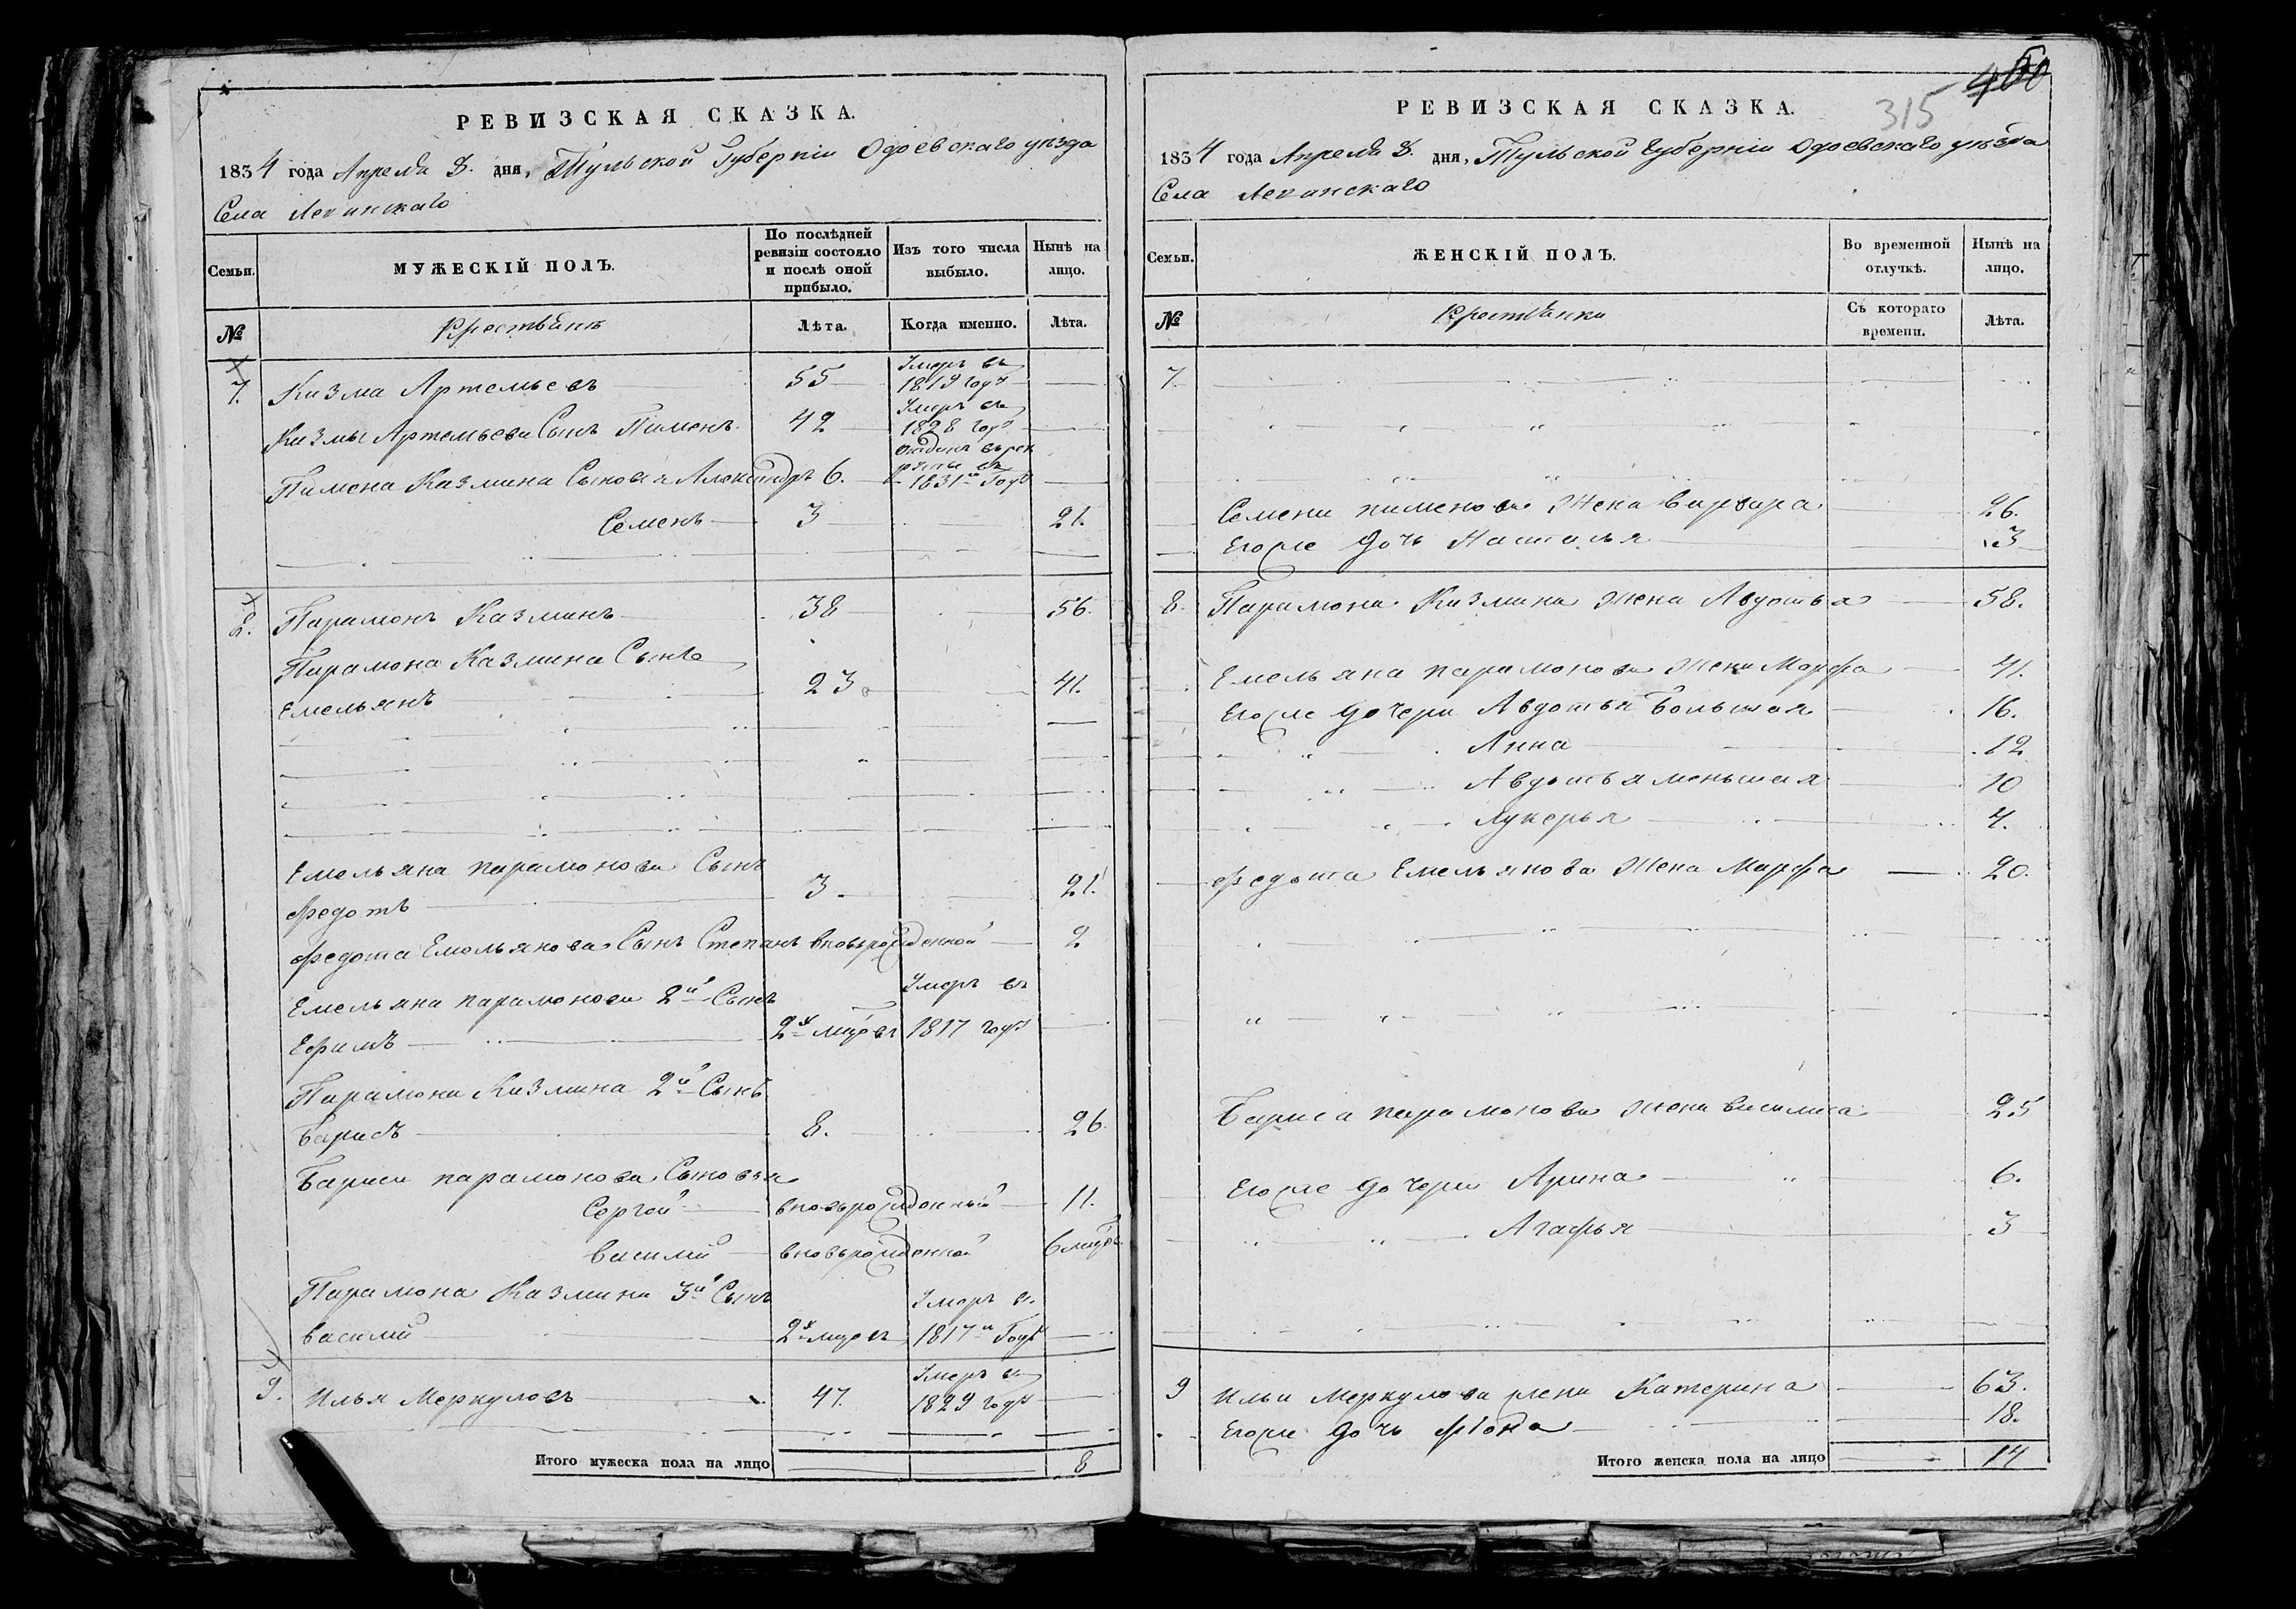 РЕВИЗСКАЯ СКАЗКА.
1834 года Апреля 8. дня, Тульской Губерніи Одоевскаго уѣзда
Села
Семьи.
МУЖЕСКІЙ ПОЛЪ.
По послѣдней ревизіи состояло и послѣ оной прибыло.
Изъ того числа выбыло.
Нынѣ на лицо.
№
Крестьянѣ
Лѣта.
Когда именно.
Лѣта.
7. Кизма Артемьевъ 55 Умеръ въ 1819 году
Кизмы Артемьева Сынъ Пименъ 42 Умеръ въ 1828 году
Пимена Казмина Сыновья Александръ 6. отданъ въ рекруты въ 1831м Году
Семенъ 3 21.
8. Парамонъ Казминъ 38 56.
Парамона Казмина Сынъ
Емельянъ 23 41.
Емельяна парамонова Сынъ
Федотъ 3 21.
Федота Емельянова Сынъ Степанъ вновьрожденной 2
Емельяна парамонова 2й Сынъ
Ефимъ 2х мцовъ Умеръ въ 1817 году
Парамона Кизмина 2й Сынъ
Барисъ 8. 26.
Бариса парамонова Сыновья
Сергей вновьрожденный 11.
василий вновьрожденной 6 мцовъ
Парамона Казмина 3й Сынъ
василий 2х мцовъ Умеръ въ 1817м Году
9. Илья Меркуловъ 47. Умеръ въ 1829 году
Итого мужеска пола на лицо 8
460
315
РЕВИЗСКАЯ СКАЗКА.
1834 года Апреля 8. дня, Тульской Губерніи Одоевскаго уѣзда
Села
Семьи.
ЖЕНСКІЙ ПОЛЪ.
Во временной отлучкѣ.
Нынѣ на лицо.
№
Крестьянки
Съ котораго времени.
Лѣта.
7.
Семена пименова Жена варвара 26.
Егоже дочь Наталья 3
8. Парамона Кизмина Жена Авдотья 58.
Емельяна парамонова Жена Марфа 41.
Егоже дочери Авдотья Большая 16.
Анна 12
Авдотья меньшая 10
Лукерья 4.
Федота Емельянова Жена Марфа 20.
Бариса парамонова Жена василиса 25
Егоже дочери Арина 6.
Агафья 3
9 Ильи Меркулова жена Катерина 63.
Егоже дочь 18.
Итого женска пола на лицо 14